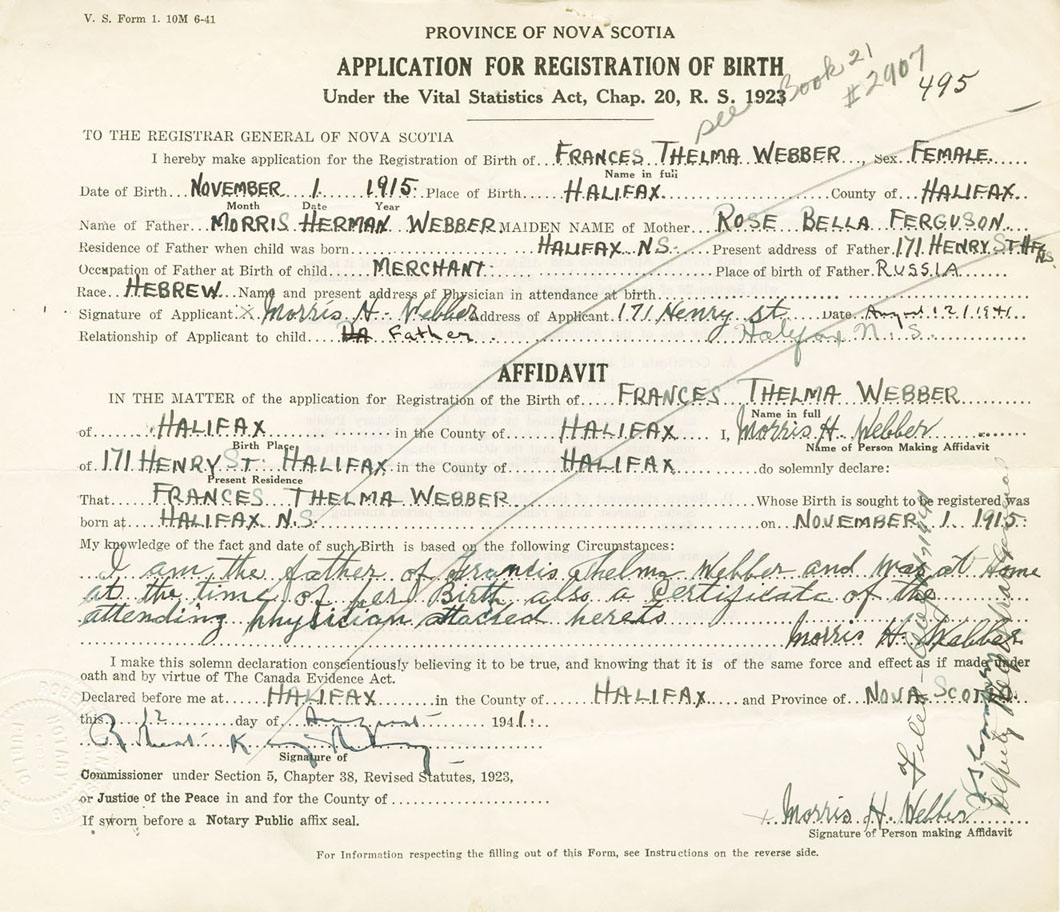 V. S. Form 1. 10M 6-41
PROVINCE OF NOVA SCOTIA
APPLICATION FOR REGISTRATION OF BIRTH
Under the Vital Statistics Act, Chap. 20, R. S. 1923
see Book 21
#2907
495
TO THE REGISTRAR GENERAL OF NOVA SCOTIA
I hereby make application for the Registration of Birth of FRANCES THELMA WEBBER, Sex FEMALE
Name in full
Date of Birth NOVEMBER 1 1915 Place of Birth HALIFAX County of HALIFAX
Month Date Year
Name of Father MORRIS HERMAN WEBBER MAIDEN NAME of Mother ROSE BELLA FERGUSON
Residence of Father when child was born HALIFAX N.S. Present address of Father 171 HENRY ST HFX NS
Occupation of Father at Birth of child MERCHANT Place of birth of Father RUSSIA
Race HEBREW Name and present address of Physician in attendance at birth
Signature of Applicant X Morris H. Webber Address of Applicant 171 Henry st. Date August 12/1941
Relationship of Applicant to child Father Halifax N.S.
AFFIDAVIT
IN THE MATTER of the application for Registration of the Birth of FRANCES THELMA WEBBER
Name in full
of HALIFAX in the County of HALIFAX I, Morris H. Webber
Birth Place Name of Person Making Affidavit
of 171 HENRY ST. HALIFAX in the County of HALIFAX do solemnly declare:
Present Residence
That FRANCES THELMA WEBBER Whose Birth is sought to be registered was
born at HALIFAX N.S. on NOVEMBER 1 1915
My knowledge of the fact and date of such Birth is based on the following Circumstances:
I am the father of Francis Thelma Webber and was at Home
at the time of her Birth also a Certificate of the
attending physician attached hereto
Morris H. Webber
I make this solemn declaration conscientiously believing it to be true, and knowing that it is of the same force and effect as if made under
oath and by virtue of The Canada Evidence Act.
Declared before me at HALIFAX in the County of HALIFAX and Province of NOVA SCOTIA
this 12 day of August 1941
Signature of
Commissioner under Section 5, Chapter 38, Revised Statutes, 1923,
or Justice of the Peace in and for the County of
If sworn before a Notary Public affix seal.
X Morris H. Webber
Signature of Person making Affidavit
For Information respecting the filling out of this Form, see Instructions on the reverse side.
Filed
Deputy Registrar General
NOTARY PUBLIC